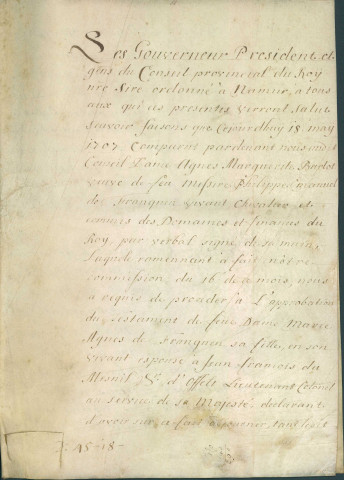 Les Gouverneur President et
gens du Conseil provincial du Roy
nre Sire ordonné à Namur, a tous
ceux qui ces presentes verront salut
scavoir faisons que cejourdhuy 18 may
1707 Comparut pardevant nous audit
Conseil Dame Agnes Marguerite
veuve de feu messire Philippe
de Franquen vivant Chevalier et
commis des Domaines et finances du
Roy, par verbal signé de sa main,
Laquele ramenant à fait nôtre
commission du 16 de ce mois, nous
a requis de proceder à L'approbation
du testament de feue Dame Marie
Agnes de Franquen sa fille, en son
vivant espouse a Jean francois du
Mesnil Sr d'Offelt Lieutenant Colonel
au service de sa Majesté, declarant
d'avoir sur ce fait adjourner, tant ledit
J. 45-18-